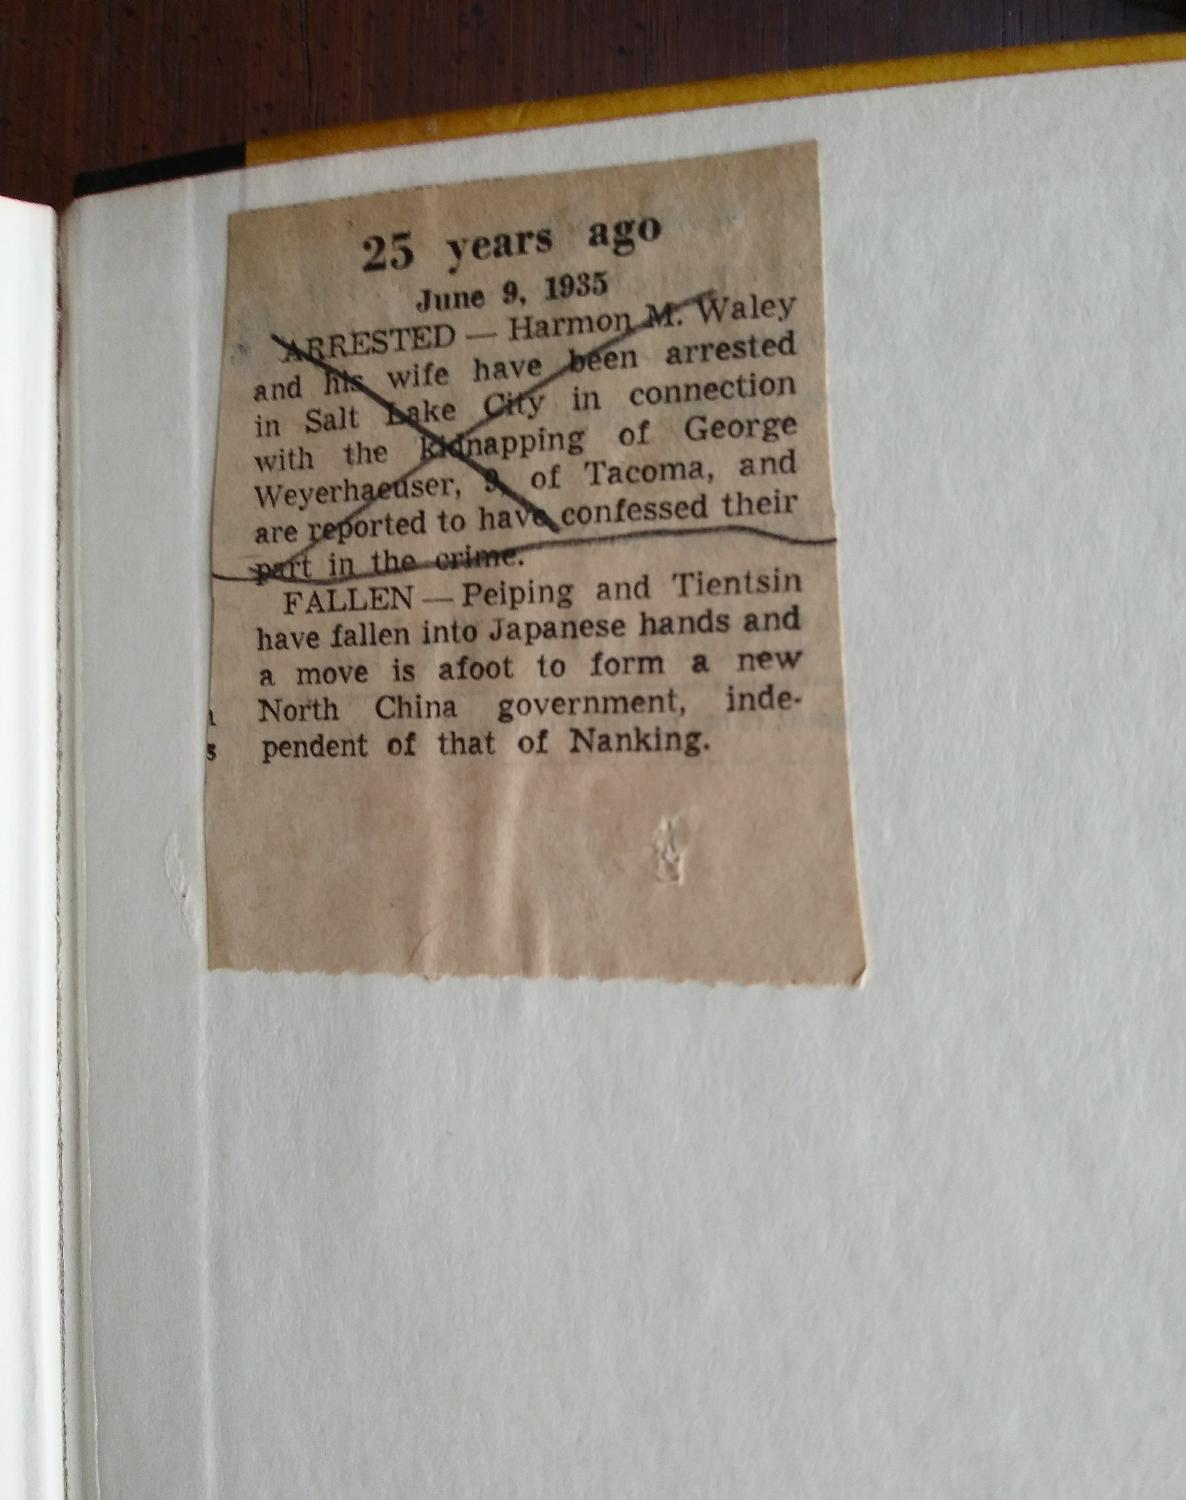 25 years ago
June 9, 1935
ARRESTED — Harmon M. Waley
and his wife have been arrested
in Salt Lake City in connection
with the kidnapping of George
Weyerhaeuser, 9, of Tacoma, and
are reported to have confessed their
part in the crime.
FALLEN — Peiping and Tientsin
have fallen into Japanese hands and
a move is afoot to form a new
North China government, inde-
pendent of that of Nanking.
s